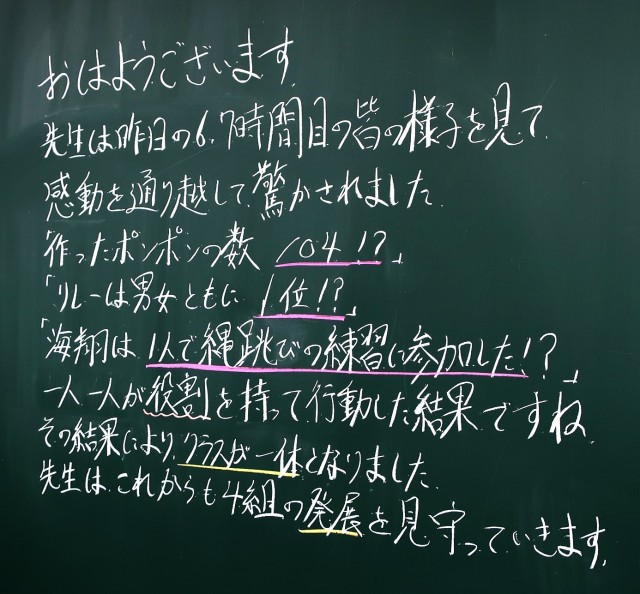 おはようございます
先生は昨日の6.7時間目の皆の様子を見て
感動を通り越して驚かされました
「作ったポンポンの数 104!?」
「リレーは男女ともに 1位!?」
「海翔は 1人で縄跳びの練習に参加した!?」
一人一人が役割を持って行動した結果ですね
その結果により、クラスが一体となりました
先生は、これからも4組の発展を見守っていきます。